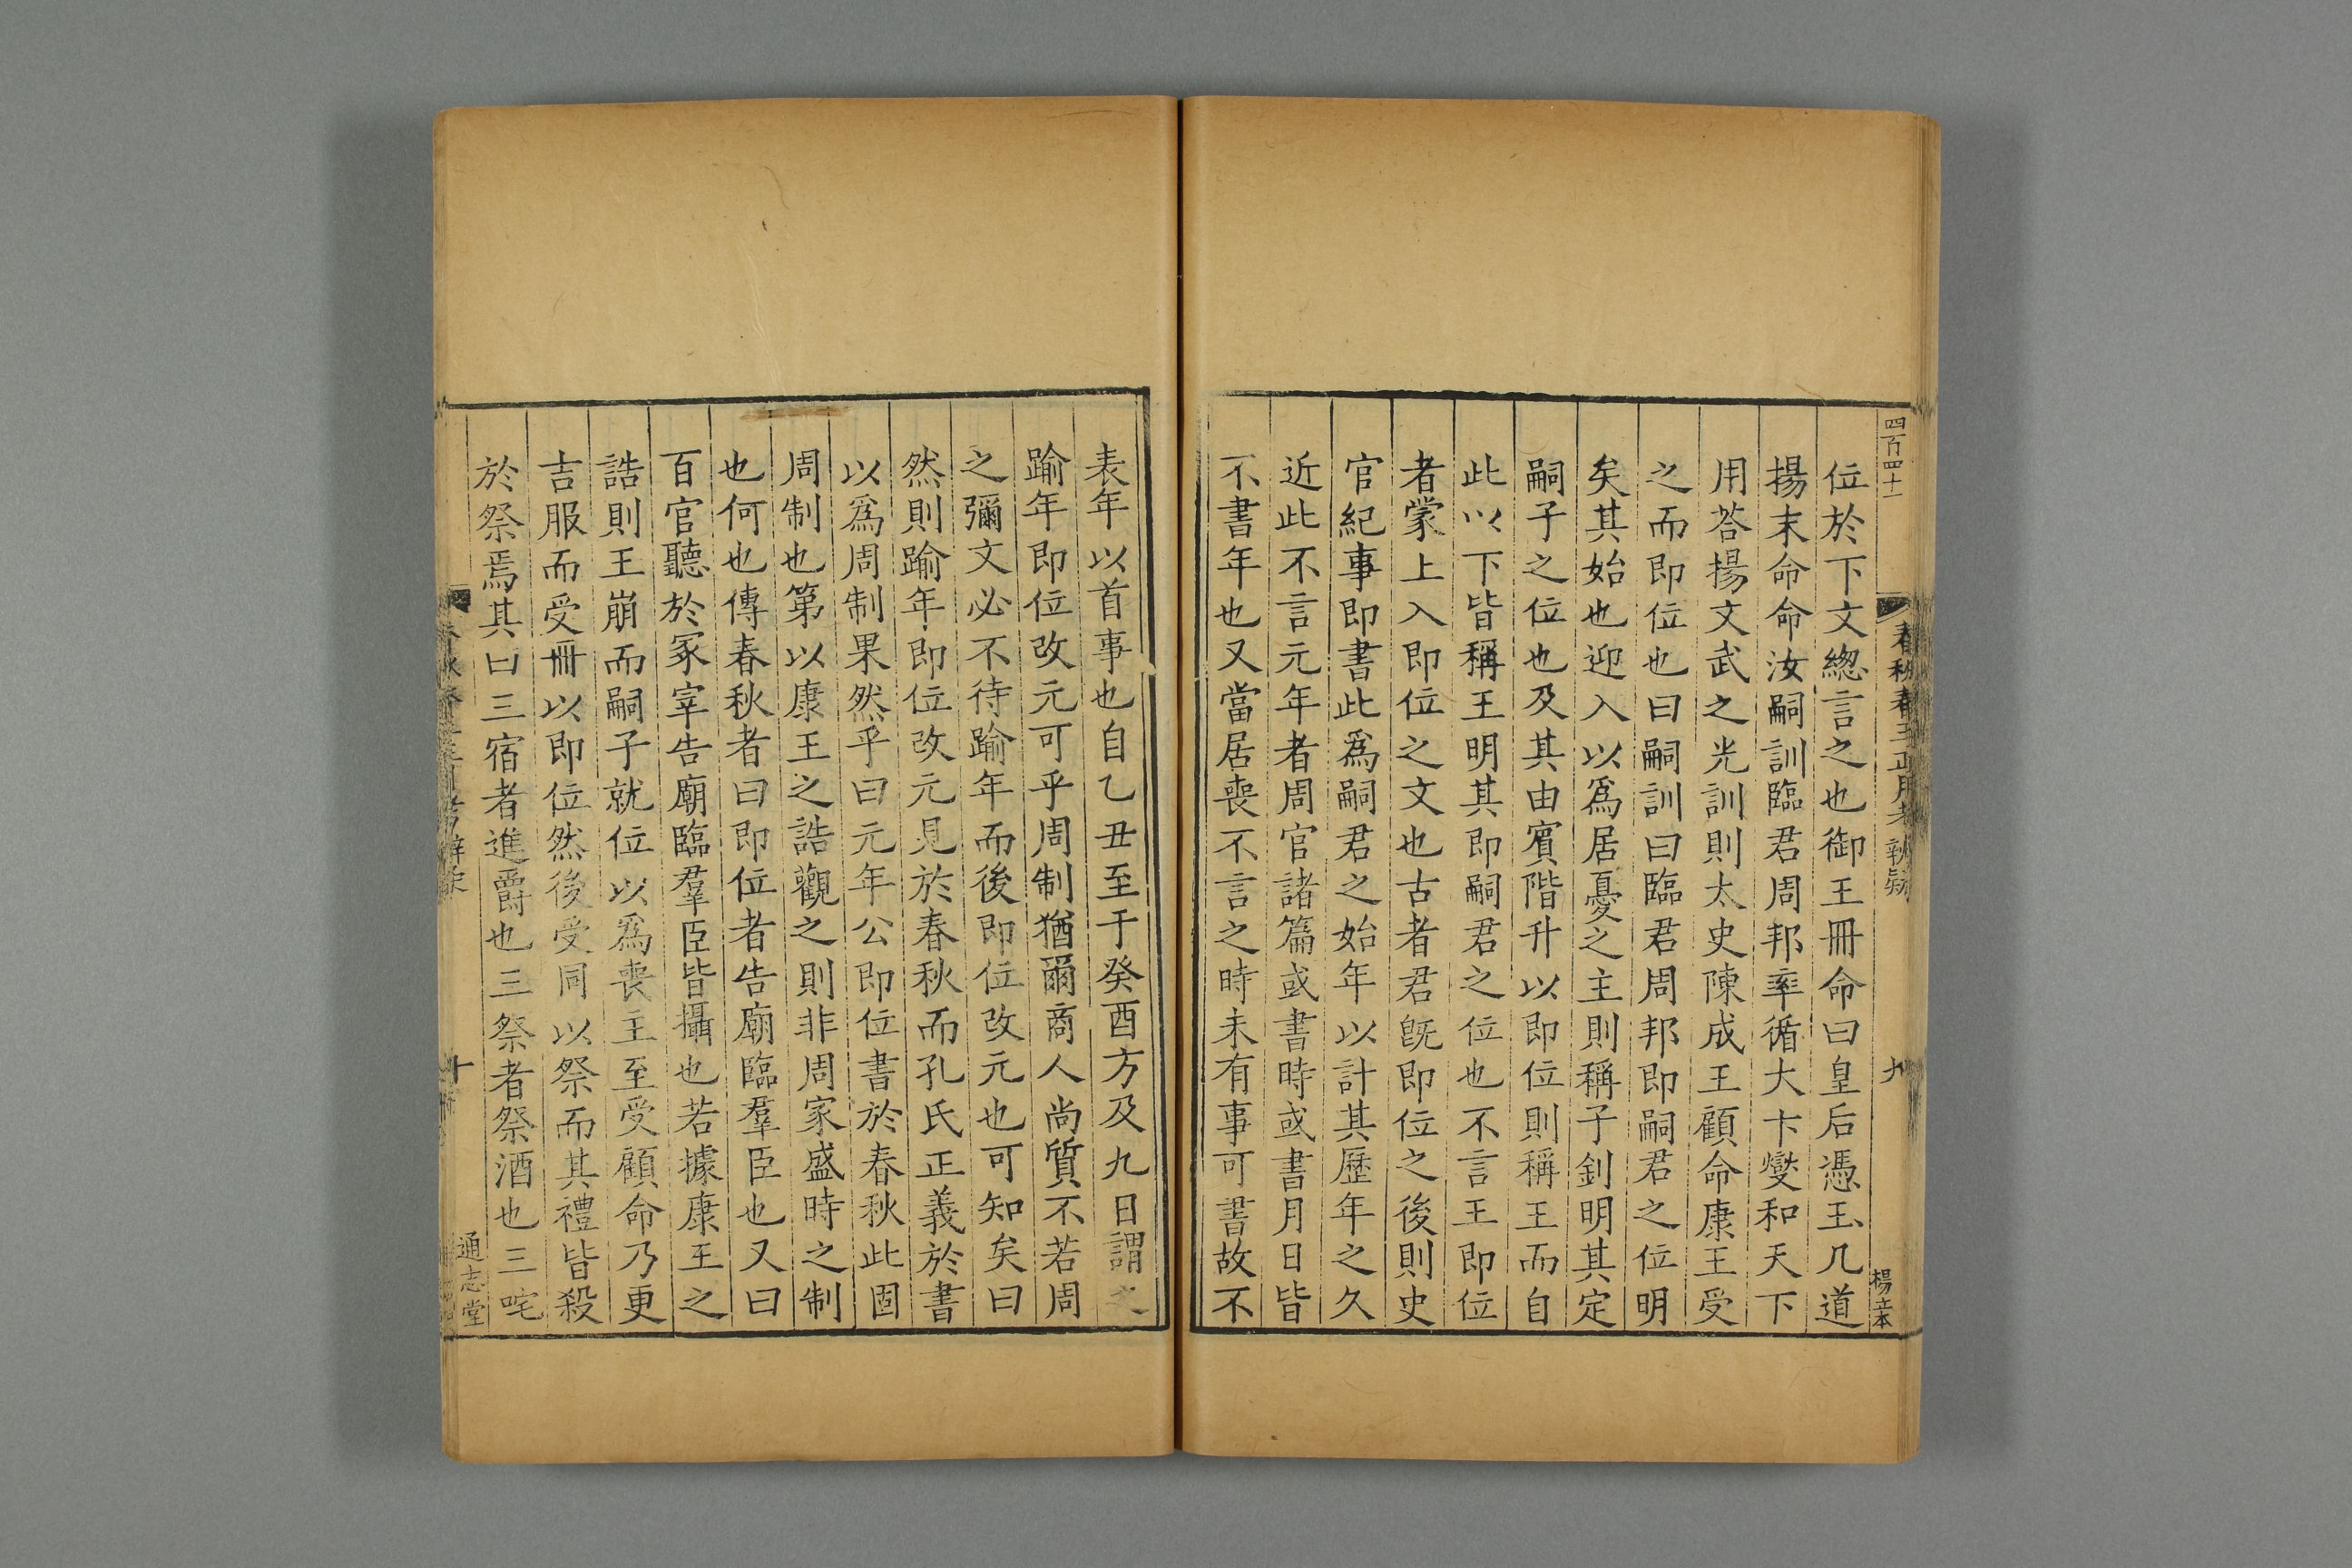 四百四十一
春秋春王正月考 辨疑
九
楊立本
位於下文緫言之也御王冊命曰皇后憑玉几道
揚末命命汝嗣訓臨君周邦率循大卞燮和天下
用荅揚文武之光訓則太史陳成王顧命康王受
之而即位也曰嗣訓曰臨君周邦即嗣君之位明
矣其始也迎入以爲居憂之主則稱子釗明其定
嗣子之位也及其由賓階升以即位則稱王而自
此以下皆稱王明其即嗣君之位也不言王即位
者蒙上入即位之文也古者君旣即位之後則史
官紀事即書此爲嗣君之始年以計其歷年之久
近此不言元年者周官諸篇或書時或書月日皆
不書年也又當居喪不言之時未有事可書故不
表年以首事也自乙丑至于癸酉方及九日謂之
踰年即位改元可乎周制猶爾商人尚質不若周
之彌文必不待踰年而後即位改元也可知矣曰
然則踰年即位改元見於春秋而孔氏正義於書
以爲周制果然乎曰元年公即位書於春秋此固
周制也第以康王之誥觀之則非周家盛時之制
也何也傳春秋者曰即位者告廟臨羣臣也又曰
百官聽於冢宰告廟臨羣臣皆攝也若據康王之
誥則王崩而嗣子就位以爲喪主至受顧命乃更
吉服而受冊以即位然後受同以祭而其禮皆殺
於祭焉其曰三宿者進爵也三祭者祭酒也三咤
十
通志堂